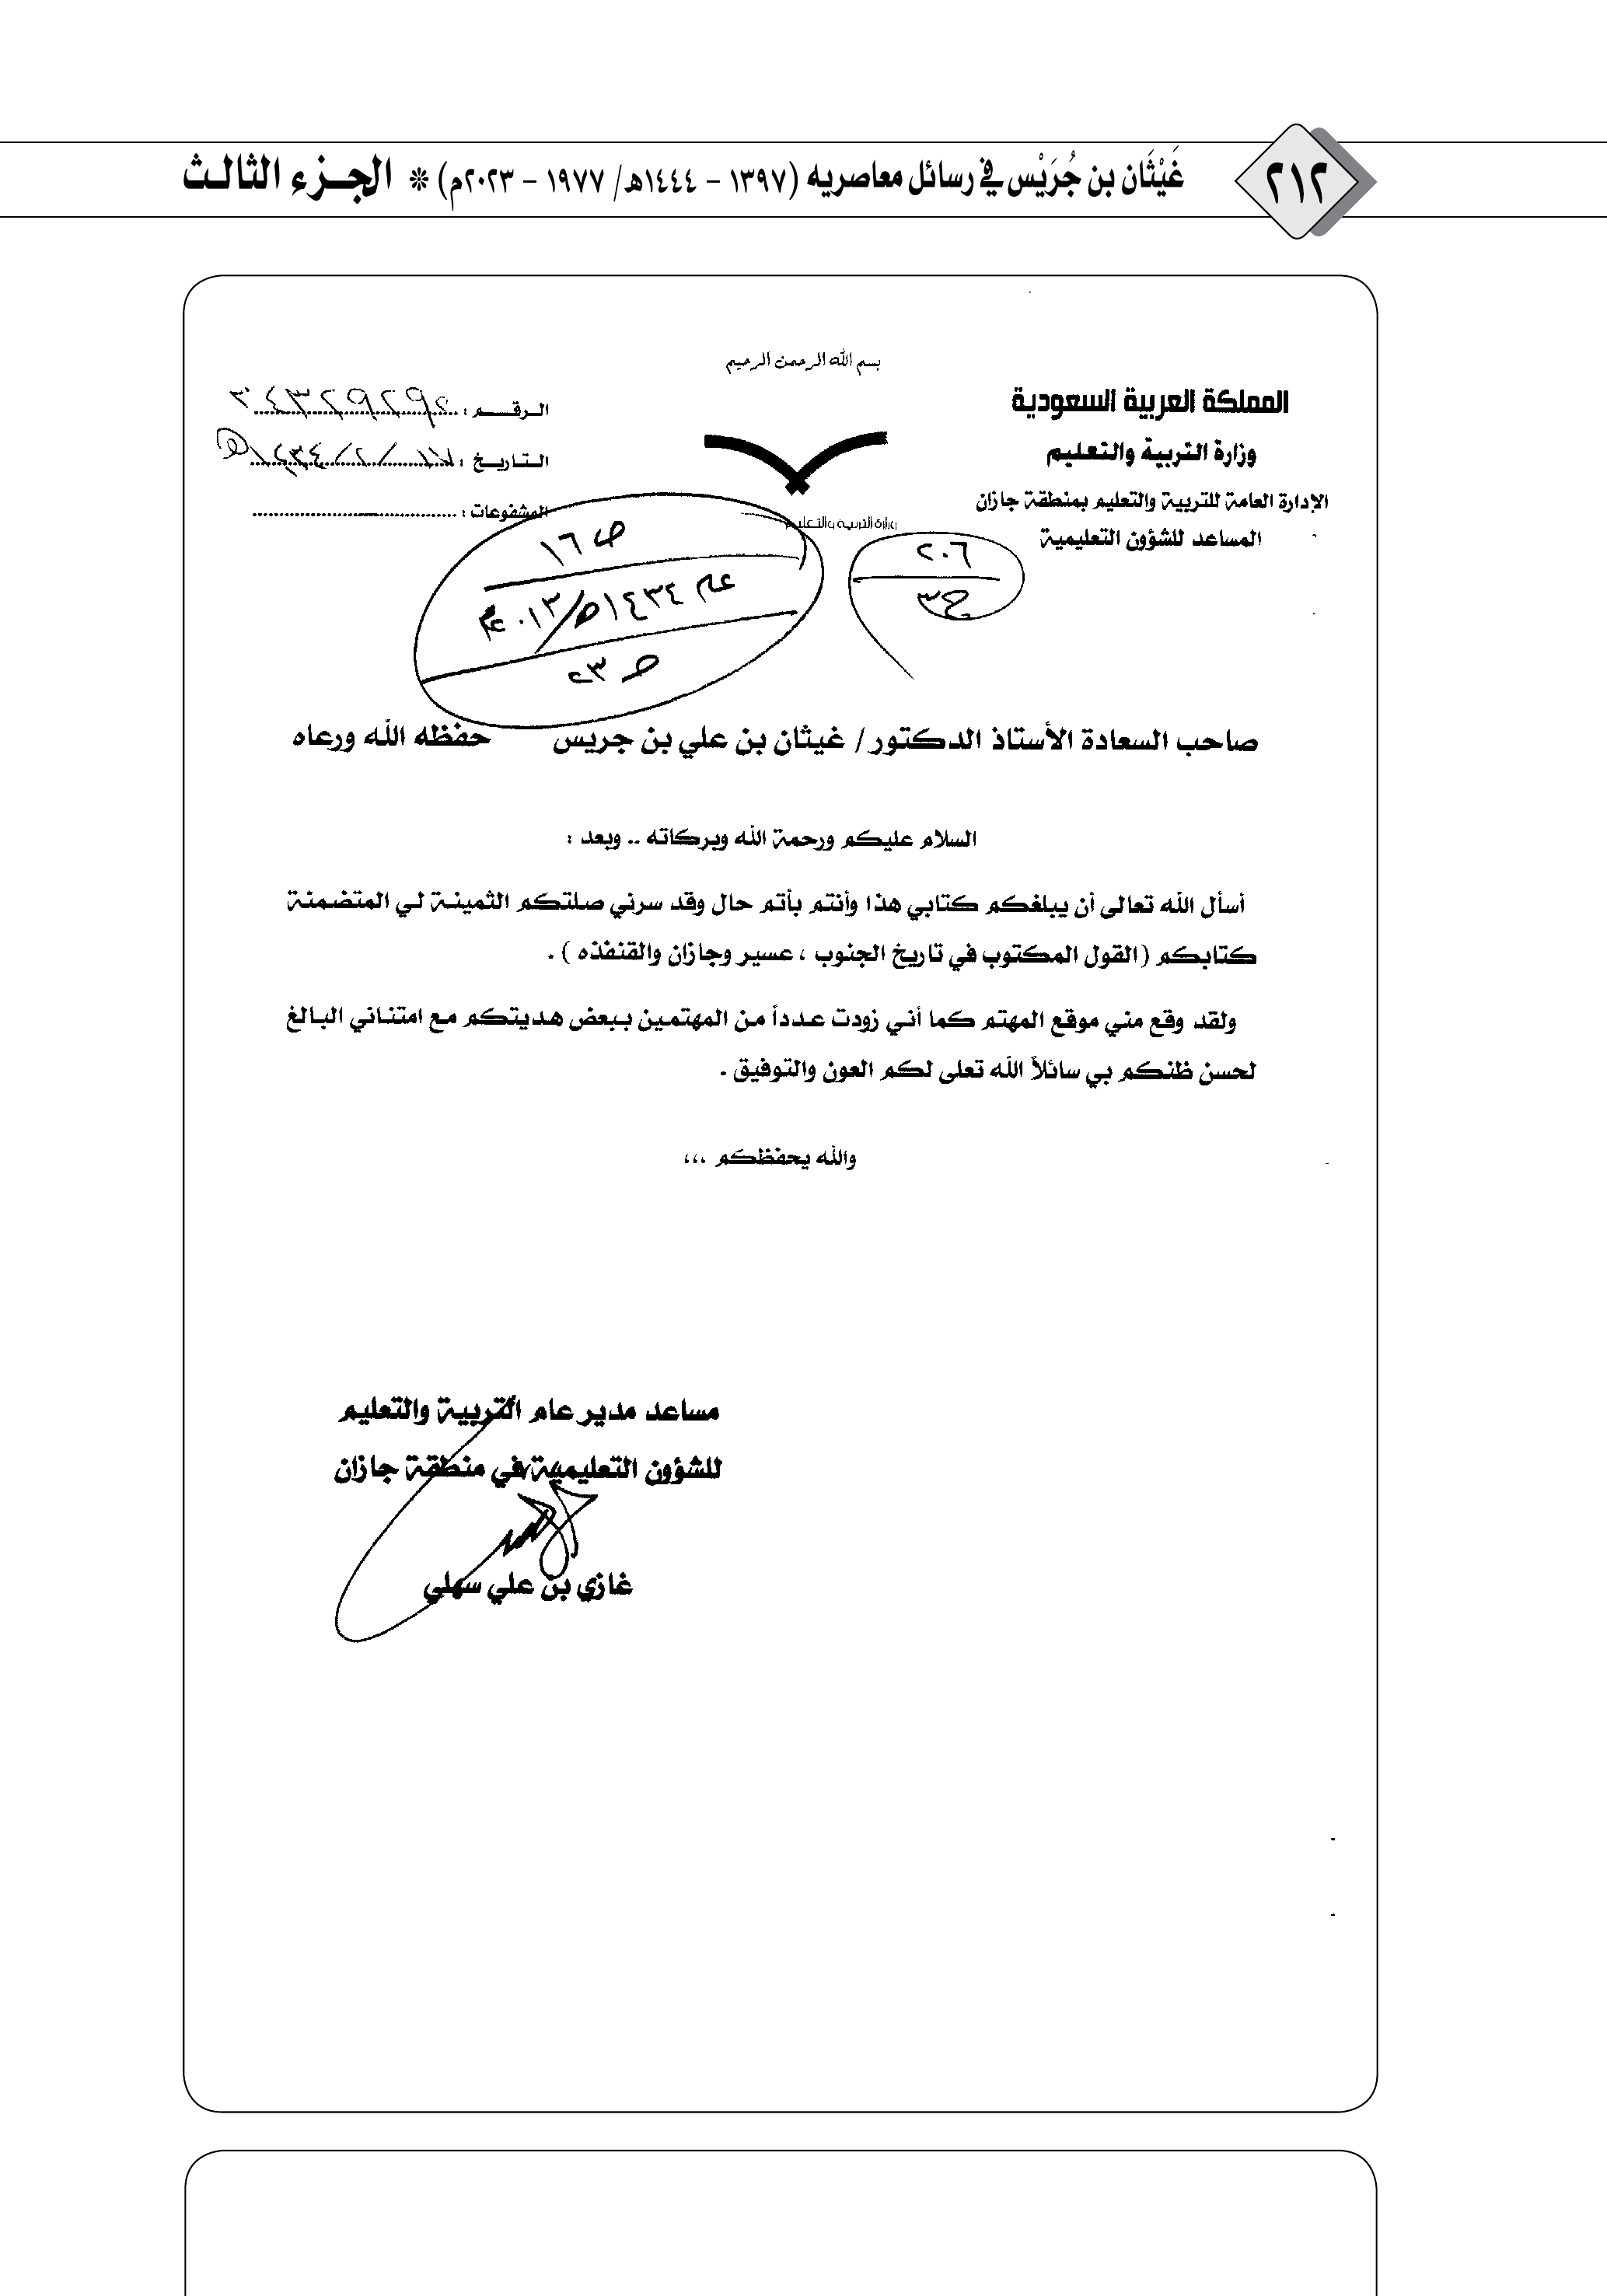 ٢١٢
غَيْثَان بن جُرَيْس في رسائل معاصريه (١٣٩٧ - ١٤٤٤هـ/ ١٩٧٧ - ٢٠٢٣م) * الجـزء الثالـث
بسم الله الرحمن الرحيم
المملكة العربية السعودية
وزارة التربية والتعليم
الإدارة العامة للتربية والتعليم بمنطقة جازان
المساعد للشؤون التعليمية
وزارة التربية والتعليم
الـرقــم :
التـاريـخ :
المشفوعات :
٢٠٦
ج٣
ص ١٦
عام ١٤٣٤هـ/٢٠١٣م
صاحب السعادة الأستاذ الدكتور/ غيثان بن علي بن جريس حفظه الله ورعاه
السلام عليكم ورحمة الله وبركاته .. وبعد :
أسأل الله تعالى أن يبلغكم كتابي هذا وأنتم بأتم حال وقد سرني صلتكم الثمينة لي المتضمنة
كتابكم ( القول المكتوب في تاريخ الجنوب ، عسير وجازان والقنفذه ) .
ولقد وقع مني موقع المهتم كما أني زودت عدداً من المهتمين ببعض هديتكم مع امتناني البالغ
لحسن ظنكم بي سائلاً الله تعلى لكم العون والتوفيق .
والله يحفظكم ،،،
مساعد مدير عام التربية والتعليم
للشؤون التعليمية في منطقة جازان
غازي بن علي سهلي